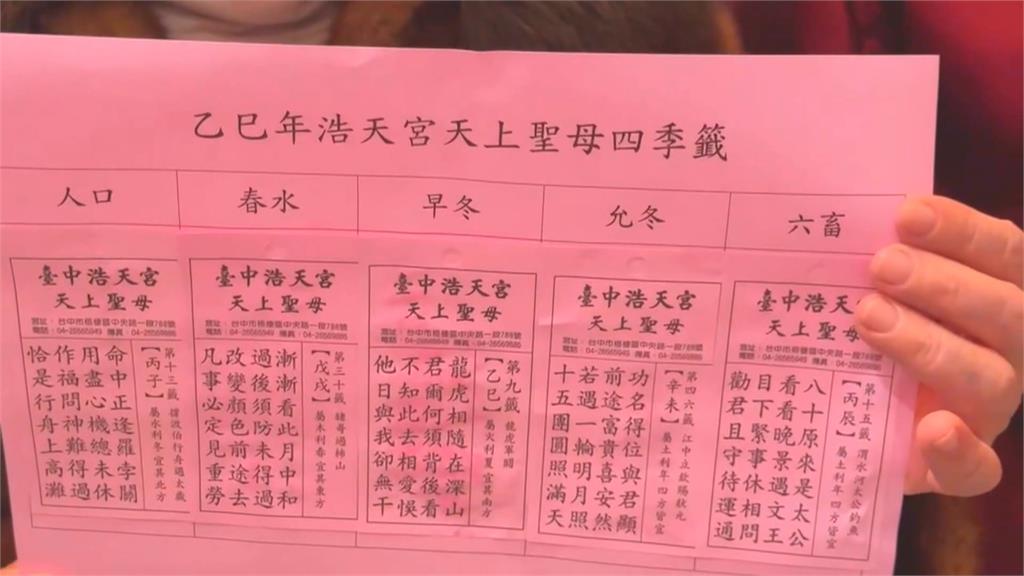 乙巳年浩天宮天上聖母四季籤
人口
春水
早冬
允冬
六畜
臺中浩天宮
天上聖母
第十三籤
【丙子】屬水利冬宜其北方
命中正逢羅孛關
用盡心機總未休
作福問神難得過
恰是行舟上高灘
臺中浩天宮
天上聖母
宮址：台中市梧棲區中央路一段788號
第三十籤 豬哥過柿山
【戊戌】屬木利春宜其東方
漸漸看此月中和
過後須防未得過
改變顏色前途去
凡事必定見重勞
臺中浩天宮
天上聖母
宮址：台中市梧棲區中央路一段788號
第九籤 龍虎軍鬪
【乙巳】屬火利夏宜其南方
龍虎相隨在深山
君爾何須背後看
不知此去相愛悞
他日與我卻無干
臺中浩天宮
天上聖母
宮址：台中市梧棲區中央路一段788號
第四六籤 江中立欽賜狀元
【辛未】屬土利年四方皆宜
功名得位與君顯
前途富貴喜安然
若遇一輪明月照
十五團圓照滿天
臺中浩天
天上聖母
第十五籤 渭水河太公釣魚
【丙辰】屬土利年四方皆宜
八十原來是太公
看看晚景遇文王
目下緊事休相問
勸君且守待運通